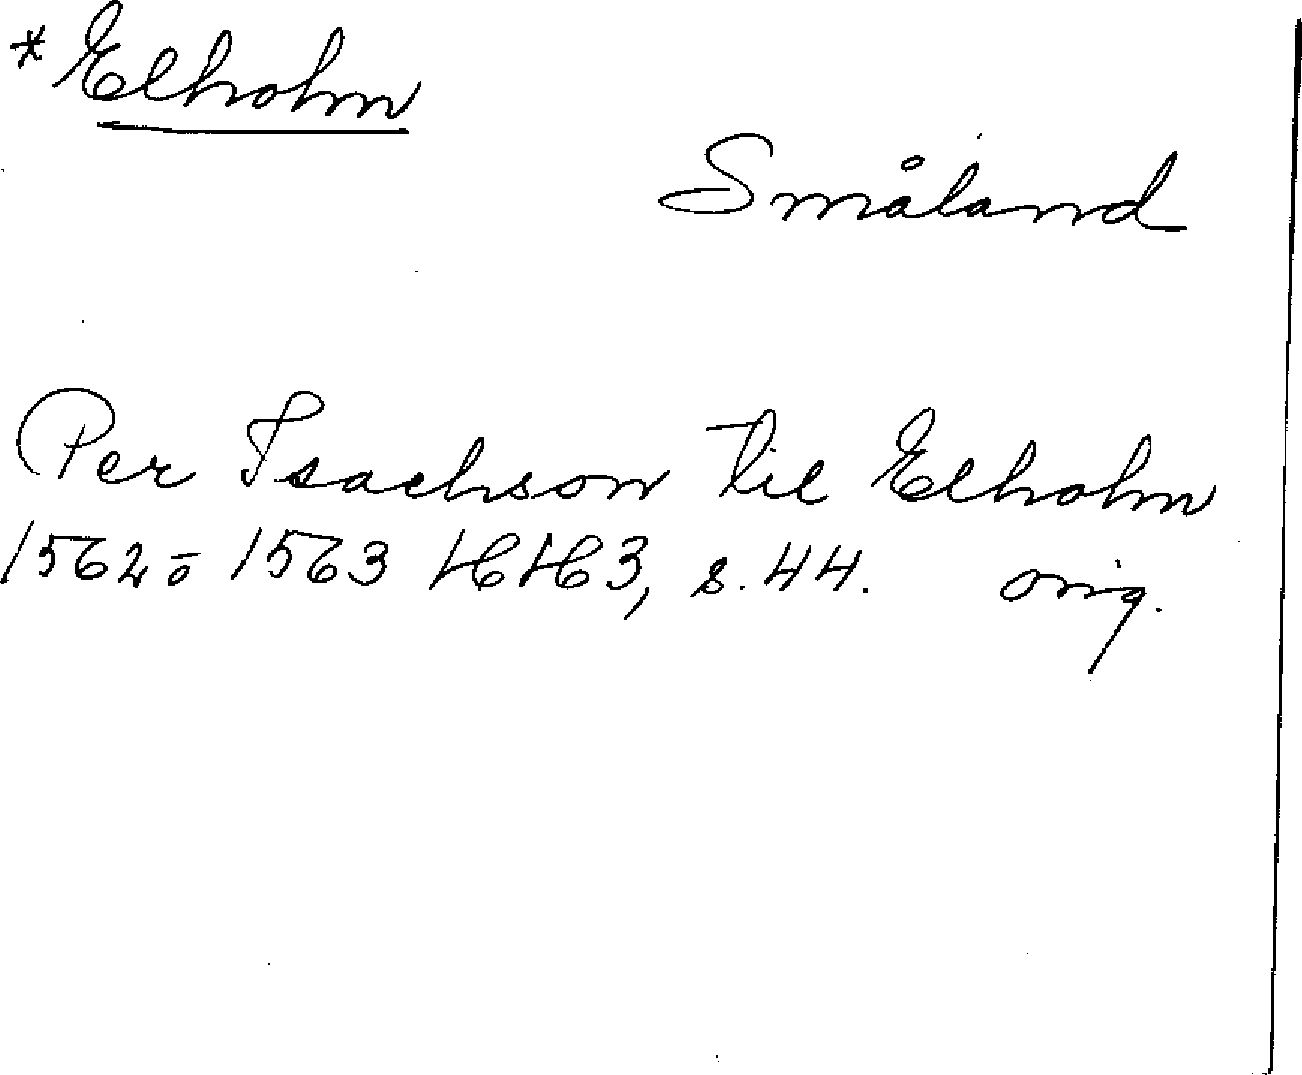 *Elholm
Småland
Per Isachson til Elholm
1562 ō 1563 HH3, s. 44. orig.